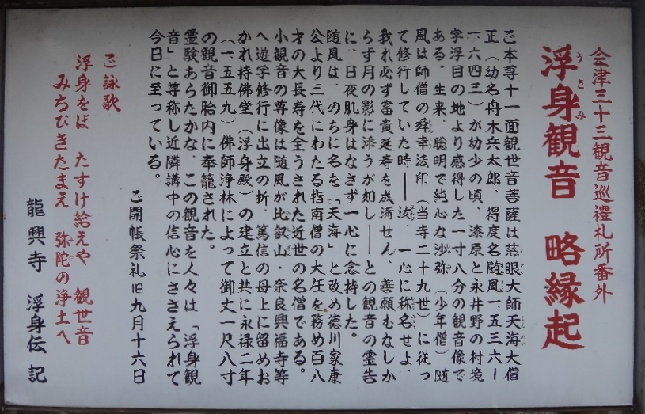 会津三十三観音巡禮札所番外
浮身観音 略縁起
うきみ
ご本尊十一面観世音菩薩は慈眼大師天海大僧
正(幼名舟木兵太郎、得度名随風一五三六—
一六四三)が幼少の頃、漆原と永井野の村境
字浮目の地より感得した一寸八分の観音像で
ある。生来、聡明で純心な沙弥(少年僧)随
風は師僧の舜幸法印(当寺二十九世)に従っ
て修行していた時——汝、一心に称名せよ、
我れ必ず富貴延寿を成満せん、善願むなしか
らず月の影に添うが如し——との観音の霊告
に、日夜肌身はなさず一心に念持した。
随風は、のちに名を「天海」と改め徳川家康
公より三代にわたる指南僧の大任を務め百八
才の大長寿を全うされた近世の名僧である。
小観音の尊像は随風が比叡山・奈良興福寺等
へ遊学修行に出立の折、篤信の母上に留めお
かれ持佛堂(浮身殿)の建立と共に永禄二年
(一五五九)佛師浄林によって御丈一尺八寸
の観音御胎内に奉籠された。
霊験あらたかな、この観音を人々は「浮身観
音」と等称し近隣講中の信心にささえられて
今日に至っている。
ご開帳祭礼旧九月十六日
ご詠歌
浮身をば たすけ給えや 観世音
みちびきたまえ 弥陀の浄土へ
龍興寺 浮身伝記